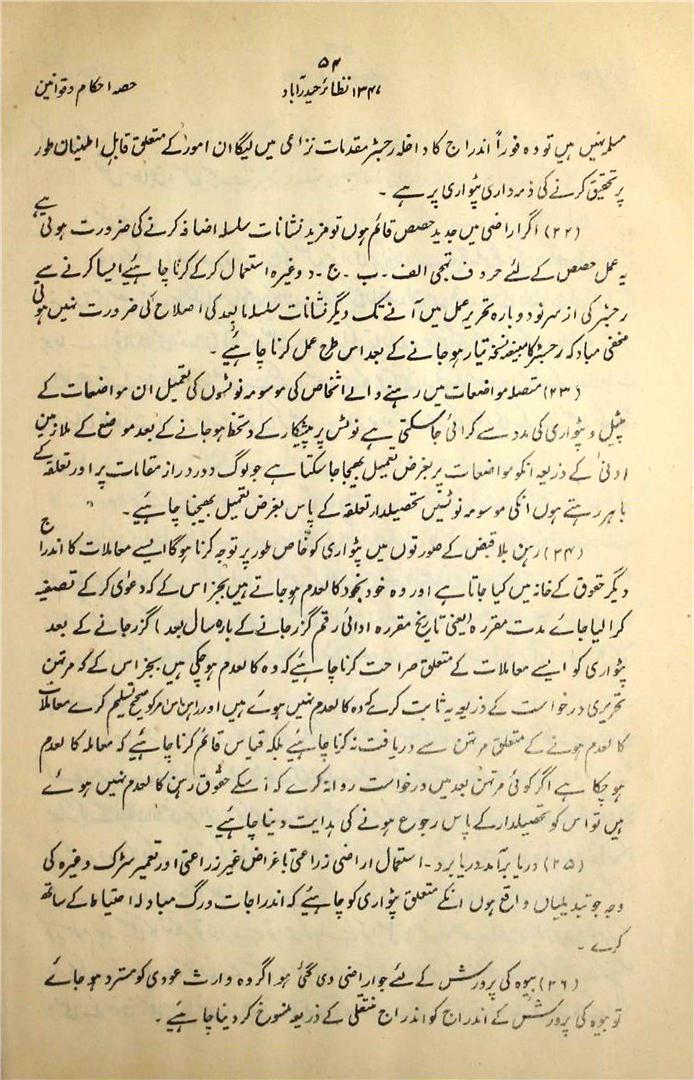 ۵۴
۱۳۴۷ نظائر حیدرآباد
حصہ احکام و قوانین
مسلمہ نہیں ہیں تو وہ فوراً اندراج کا داخلہ رجسٹر مقدمات نزاعی میں لیگا ان امور کے متعلق قابل اطمینان طور
پر تحقیق کرنے کی ذمہ داری پٹواری پر ہے ۔
(۲۲) اگر اراضی میں جدید حصص قائم ہوں تو مزید نشانات سلسلہ اضافہ کرنے کی ضرورت ہوتی ہے
یہ عمل حصص کے لئے حروف تہجی الف ۔ ب ۔ ج ۔ د وغیرہ استعمال کرکے کرنا چاہئیے ایسا کرنے سے
رجسٹر کی از سر نو دوبارہ تحریر عمل میں آنے تک دیگر نشانات سلسلہ مابعد کی اصلاح کی ضرورت نہیں ہوتی
مخفی مباد کہ رجسٹر کا مبیضہ نسخہ تیار ہو جانے کے بعد اس طرح عمل کرنا چاہئیے ۔
(۲۳) متصلہ مواضعات میں رہنے والے اشخاص کی موسومہ نوٹسوں کی تعمیل ان مواضعات کے
پٹیل و پٹواری کی مدد سے کرائی جا سکتی ہے نوٹس پر پیشکار کے دستخط ہو جانے کے بعد موضع کے ملازمین
ادنیٰ کے ذریعہ انکو مواضعات پر بغرض تعمیل بھیجا جا سکتا ہے جو لوگ دور دراز مقامات پر اور تعلقہ کے
باہر رہتے ہوں انکی موسومہ نوٹسیں تحصیلدار تعلقہ کے پاس بغرض تعمیل بھیجنا چاہئیے ۔
(۲۴) رہن بلا قبض کے صورتوں میں پٹواری کو خاص طور پر توجہ کرنا ہوگا ایسے معاملات کا اندراج
دیگر حقوق کے خانہ میں کیا جاتا ہے اور وہ خود بخود کالعدم ہو جاتے ہیں بجز اس کے کہ دعویٰ کرکے تصفیہ
کرالیا جائے مدت مقررہ (یعنی تاریخ مقررہ ادائی رقم گزر جانے کے بارہ سال بعد) گزر جانے کے بعد
پٹواری کو ایسے معاملات کے متعلق صراحت کرنا چاہئیے کہ وہ کالعدم ہو چکی ہیں بجز اس کے کہ مرتہن
تحریری درخواست کے ذریعہ یہ ثابت کرے کہ وہ کالعدم نہیں ہوئے ہیں اور راہن اس امر کو صحیح تسلیم کرے معاملات
کالعدم ہونے کے متعلق مرتہن سے دریافت نہ کرنا چاہئیے بلکہ قیاس قائم کرنا چاہئیے کہ معاملہ کالعدم
ہو چکا ہے اگر کوئی مرتہن بعد میں درخواست روانہ کرے کہ اسکے حقوق رہن کالعدم نہیں ہوئے
ہیں تو اس کو تحصیلدار کے پاس رجوع ہونے کی ہدایت دینا چاہئیے ۔
(۲۵) دریا برآمد دریا برد ۔ استعمال اراضی زراعتی باغراض غیر زراعتی اور تعمیر سڑک وغیرہ کی
وجہ جو تبدیلیاں واقع ہوں انکے متعلق پٹواری کو چاہئیے کہ اندراجات ورگ مبادلہ احتیاط کے ساتھ
کرے ۔
(۲۶) بیوہ کی پرورش کے لئے جو اراضی دی گئی ہو اگر وہ وارث عودی کو مسترد ہو جائے
تو بیوہ کی پرورش کے اندراج کو اندراج منتقلی کے ذریعہ منسوخ کر دینا چاہئیے ۔